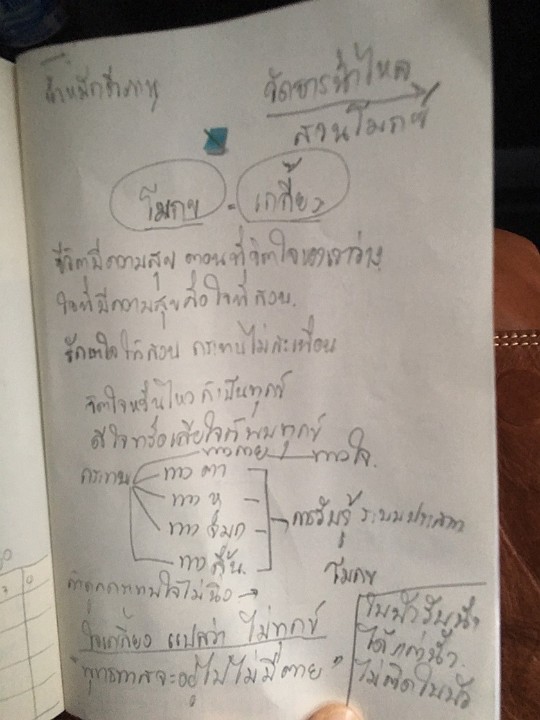 จัดธารน้ำไหล
สวนโมกข์
โมกข = เกลี้ยง
ชีวิตมีความสุข ตอนที่จิตใจของเราว่าง
ใจที่มีความสุขคือใจที่สงบ
รักษาใจให้สงบ กระทบไม่สะเทือน
จิตใจหวั่นไหว ก็เป็นทุกข์
ดีใจหรือเสียใจก็พบทุกข์
ทางกาย ทางใจ
กระทบ ทาง ตา
ทาง หู
ทาง จมูก
ทาง ลิ้น
การรับรู้ ระบบประสาท
ถ้าถูกกระทบใจไม่นิ่ง →
โมกข
ใจเกลี้ยง แปลว่า ไม่ทุกข์
"พุทธทาสจะอยู่ไปไม่มีตาย"
ใบบัวรับน้ำ
ได้ แต่น้ำ
ไม่ติดใบบัว